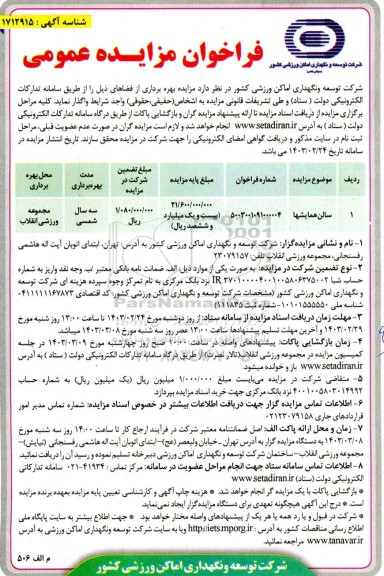 شناسه آگهی : ۱۷۱۲۹۱۵
شرکت توسعه و نگهداری اماکن ورزشی کشور
فراخوان مزایده عمومی
شرکت توسعه ونگهداری اماکن ورزشی کشور در نظر دارد مزایده بهره برداری از فضاهای ذیل را از طریق سامانه تدارکات
الکترونیکی دولت ( ستاد) و طی تشریفات قانونی مزایده به اشخاص(حقیقی،حقوقی) واجد شرایط واگذار نماید، کلیه مراحل
برگزاری مزایده از دریافت اسناد مزایده تا ارائه پیشنهاد مزایده گران و بازگشایی پاکات از طریق درگاه سامانه تدارکات الکترونیکی
دولت ( ستاد ) به آدرس www.setadiran.ir انجام خواهد شد و لازم است مزایده گران در صورت عدم عضویت قبلی، مراحل
ثبت نام در سایت مذکور و دریافت گواهی امضای الکترونیکی را جهت شرکت در مزایده محقق سازند. تاریخ انتشار مزایده در
سامانه تاریخ ۱۴۰۳/۰۲/۲۴ می باشد.
ردیف موضوع مزایده شماره فراخوان مبلغ پایه مزایده مبلغ تضمین شرکت در مزایده مدت بهره‌برداری محل بهره برداری
۱ سالن همایشها ۵۰۰۳۰۰۱۰۹۱۰۰۰۰۰۴ ۲۱/۶۰۰/۰۰۰/۰۰۰ (بیست و یک میلیارد و ششصد ریال) ۱/۰۸۰/۰۰۰/۰۰۰ ریال سه سال شمسی مجموعه ورزشی انقلاب
۱- نام و نشانی مزایده‌گزار: شرکت توسعه و نگهداری اماکن ورزشی کشور به آدرس: تهران، ابتدای اتوبان آیت اله هاشمی
رفسنجانی، مجموعه ورزشی انقلاب تلفن: ۲۳۰۷۹۱۵۷
۲- نوع تضمین شرکت در مزایده: به صورت یکی از موارد ذیل: الف. ضمانت نامه بانکی معتبر /ب. وجه نقد واریز به شماره
و نگهداری اماکن ورزشی کشور (مشخصات شرکت توسعه و نگهداری اماکن ورزشی کشور: کد اقتصادی ۴۱۱۱۱۱۱۶۷۸۷۳-
۳- مهلت زمانی دریافت اسناد مزایده از سامانه ستاد: از روز دوشنبه مورخ ۱۴۰۳/۰۲/۲۴ تا ساعت ۱۳:۰۰ روز شنبه مورخ
۱۴۰۳/۰۲/۲۹ و آخرین مهلت تسلیم پیشنهادها، ساعت ۱۳:۰۰ عصر روز سه شنبه مورخ ۱۴۰۳/۰۳/۰۸ میباشد.
۴- زمان بازگشایی پاکات: پیشنهادهای واصله در ساعت ۱۰:۰۰ صبح روز چهارشنبه مورخ ۱۴۰۳/۰۳/۰۹ در جلسه
کمیسیون مزایده در مجموعه ورزشی انقلاب(تالار نصرت) از طریق درگاه سامانه تدارکات الکترونیکی دولت ( ستاد ) به آدرس
www.setadiran.ir باز و خوانده میشود.
۵- متقاضی شرکت در مزایده می‌بایست مبلغ ۱/۰۰۰/۰۰۰ ریال (یک میلیون ریال) به شماره حساب
نزد بانک مرکزی جهت خرید اسناد مزایده بپردازد.
۶- اطلاعات تماس مزایده گزار جهت دریافت اطلاعات بیشتر در خصوص اسناد مزایده: شماره تماس مدیر امور
قراردادهای جاری ۰۲۱۲۳۰۷۹۱۵۸
۷- زمان و محل ارائه پاکت الف: اصل ضمانتنامه معتبر شرکت در فرآیند ارجاع کار تا ساعت ۱۴:۰۰ روز سه شنبه مورخ
۱۴۰۳/۰۳/۰۸ به دستگاه مزایده گزار به آدرس تهران - خیابان ولیعصر (عج)-ابتدای اتوبان آیت اله هاشمی رفسنجانی (نیایش)-
مجموعه ورزشی انقلاب-ساختمان شرکت توسعه و نگهداری اماکن ورزشی دبیرخانه تسلیم نموده و رسید آن را دریافت نمایند.
۸- اطلاعات تماس سامانه ستاد جهت انجام مراحل عضویت در سامانه: مرکز تماس : ۴۱۹۳۴-۰۲۱ سامانه تدارکاتی
الکترونیکی دولت (ستاد) www.setadiran.ir
* بازگشایی پاکات با یک مزایده گر انجام خواهد شد. * هزینه چاپ آگهی و کارشناسی تعیین پایه مزایده بعهده برنده مزایده
است * درج این آگهی هیچگونه تعهدی برای دستگاه مزایده‌گزار ایجاد نمی‌نماید.
* شرکت در قبول و یا رد همه یا هر یک از پیشنهادهای واصله مختار خواهد بود. * جهت اطلاع بیشتر به سایت پایگاه ملی
اطلاع رسانی مناقصات کشور به آدرس : http://iets.mporg.ir و یا به سایت شرکت توسعه ونگهداری اماکن ورزشی به آدرس
www.tanavar.ir مراجعه نمائید.
م الف ۵۰۶
شرکت توسعه ونگهداری اماکن ورزشی کشور